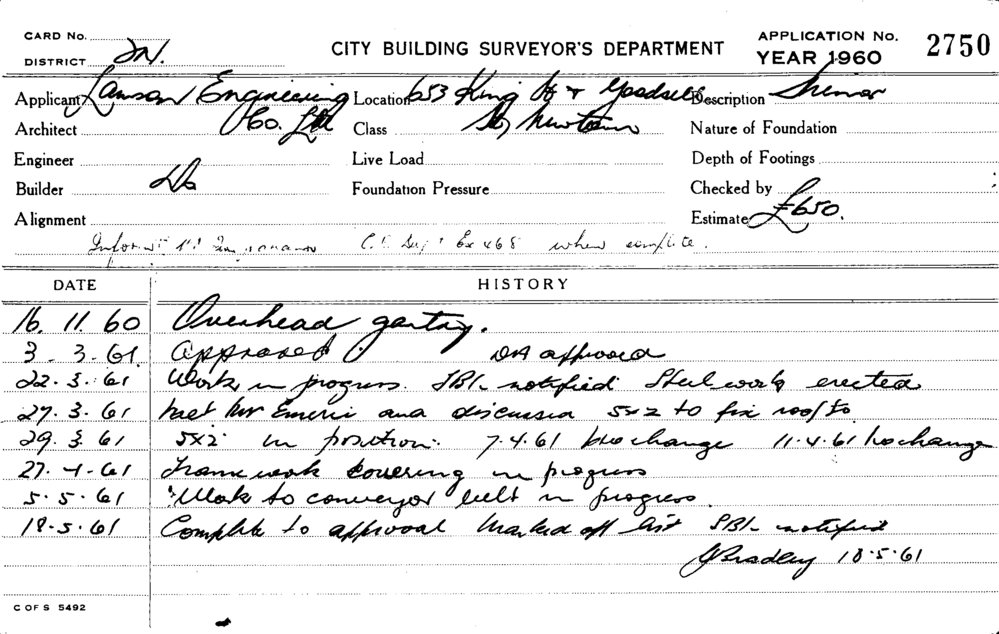 CARD No.
DISTRICT
CITY BUILDING SURVEYOR'S DEPARTMENT
APPLICATION No. 2750
YEAR 1960
Applicant Lamson Engineering Location 653 King St + Goodsell Description
Architect Co. Ltd Class St Newtown Nature of Foundation
Engineer Live Load Depth of Footings
Builder Do Foundation Pressure Checked by
Alignment Estimate £650.
Ex 468 when complete.
DATE HISTORY
16. 11. 60 Overhead gantry.
3. 3. 61 Approved DA approved
22. 3. 61 Work in progress. SBI. notified. Steel work erected
27. 3. 61 Met Mr Emeric and discussed 5x2 to fix roof to
29. 3. 61 5x2 in position. 7.4.61 No change 11.4.61 No change
27. 4. 61 Frame work covering in progress
5. 5. 61 Work to conveyor belt in progress
18. 5. 61 Complete to approval Marked off list SBI. notified
J Bradley 18.5.61
C OF S 5492